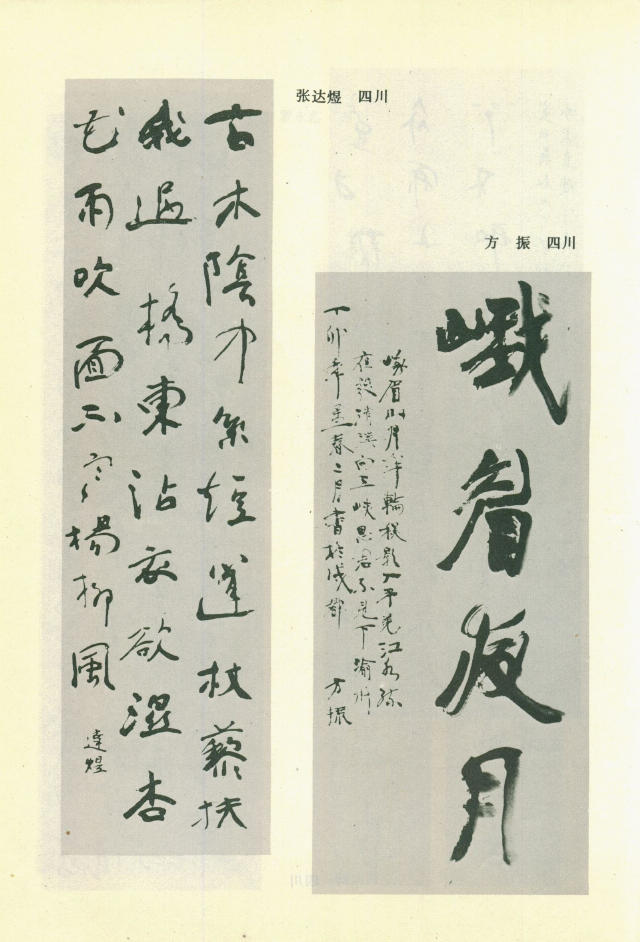 张达煜 四川
古木陰中系短篷杖藜扶
我過橋東沾衣欲濕杏
花雨吹面不寒楊柳風
達煜
方振 四川
峨眉夜月
峨眉山月半輪秋影入平羌江水流
夜發清溪向三峽思君不見下渝州
丁卯年孟春二月書於成都 方振